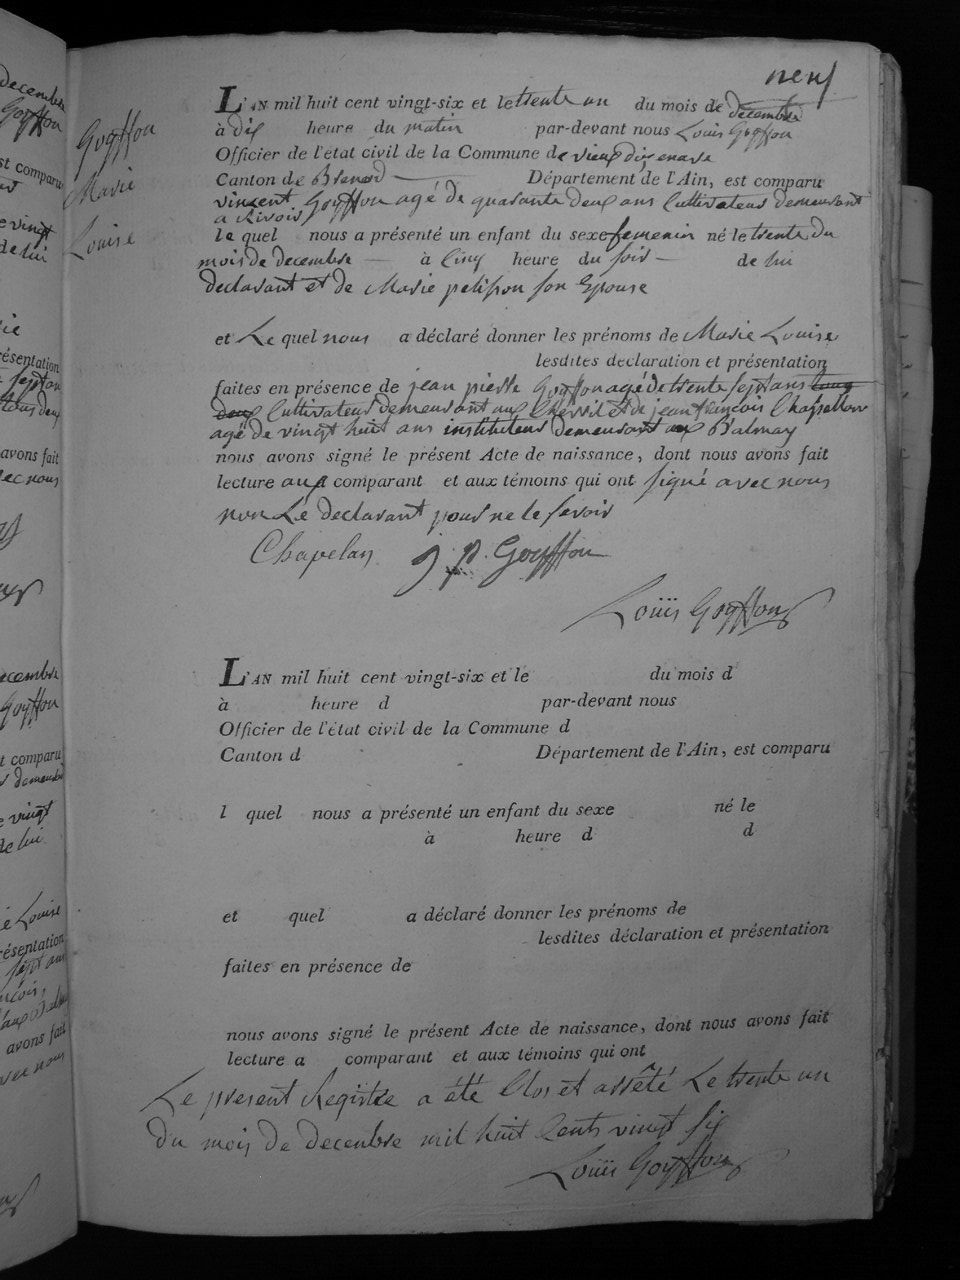 neuf
Goyffon
Marie
Louise
L'AN mil huit cent vingt-six et le trente un du mois de decembre
à dix heure du matin par-devant nous Louis Goyffon
Officier de l'état civil de la Commune de vieux d'izenave
Canton de Brenod Département de l'Ain, est comparu
vincent Goyffon agé de quarante deux ans Cultivateur demeurant
a
le quel nous a présenté un enfant du sexe femenin né le trente du
mois de decembre à Cinq heure du soir de lui
declarant et de Marie petition son Epouse
et Le quel nous a déclaré donner les prénoms de Marie Louise
lesdites déclaration et présentation
faites en présence de jean pierre Goyffon agé de trente sept ans
Cultivateur demeurant aux et de jean françois Chapellan
agé de vingt huit ans instituteur demeurant aux Balmay
nous avons signé le présent Acte de naissance, dont nous avons fait
lecture aux comparant et aux témoins qui ont signé avec nous
non Le declarant pour ne le savoir
Chapelan j. p. Goyffon
Louïs Goyffon
L'AN mil huit cent vingt-six et le du mois d
à heure d par-devant nous
Officier de l'état civil de la Commune d
Canton d Département de l'Ain, est comparu
l quel nous a présenté un enfant du sexe né le
à heure d d
et quel a déclaré donner les prénoms de
lesdites déclaration et présentation
faites en présence de
nous avons signé le présent Acte de naissance, dont nous avons fait
lecture a comparant et aux témoins qui ont
Le present Registre a été Clos et arrêté Le trente un
du mois de decembre mil huit Cents vingt six
Louïs Goyffon